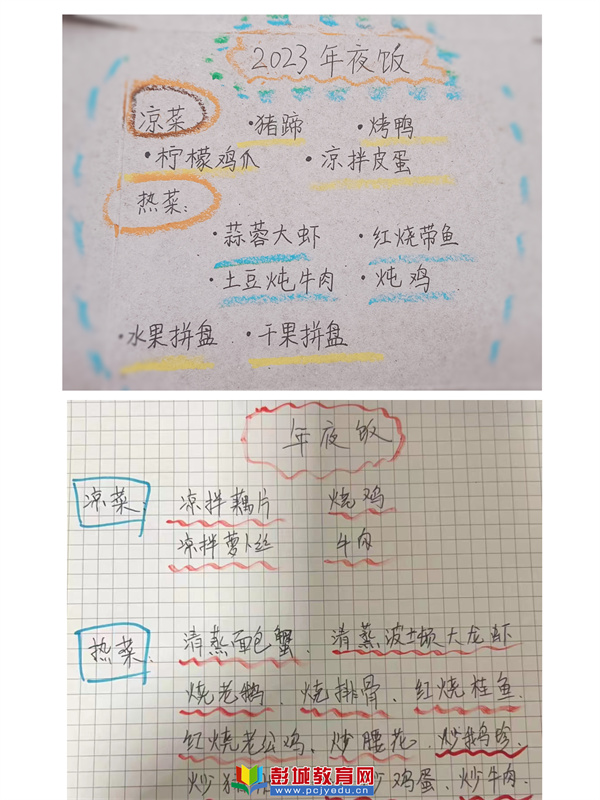 2023年夜饭
凉菜 ·猪蹄 ·烤鸭
·柠檬鸡爪 ·凉拌皮蛋
热菜：
·蒜蓉大虾 ·红烧带鱼
·土豆炖牛肉 ·炖鸡
·水果拼盘 ·干果拼盘
年夜饭
凉菜： 凉拌藕片 烧鸡
凉拌萝卜丝 牛肉
热菜： 清蒸面包蟹、清蒸波士顿大龙虾
烧老鹅、烧排骨、红烧桂鱼、
红烧老公鸡、炒腰花、炒鹅珍、
炒 炒鸡蛋、炒牛肉、
彭城教育网
www.pcjyedu.cn